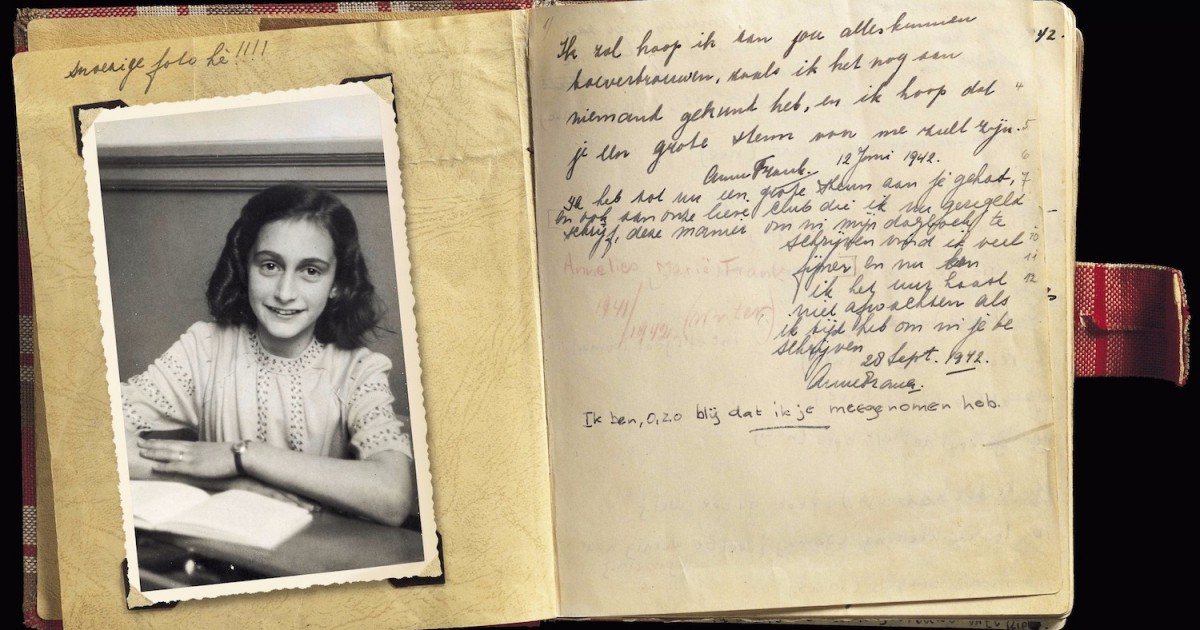 snoezige foto hè!!!!
Ik zal hoop ik aan jou alles kunnen
toevertrouwen, zoals ik het nog aan
niemand gekunt heb, en ik hoop dat
je een grote steun voor me zult zijn.
Anne Frank. 12 Juni 1942.
Ik heb tot nu een grote steun aan je gehad,
en ook aan onze lieve club die ik nu geregeld
schrijf, deze manier om in mijn dagboek te
schrijven vind ik veel
fijner en nu kan
ik het uur haast
niet afwachten als
ik tijd heb om in je te
schrijven
28 Sept. 1942.
Anne Frank.
Ik ben, o, zo blij dat ik je meegenomen heb.
Annelies Marie Frank
1941/
1942 (Winter)
42.
4
5
6
7
10
11
12